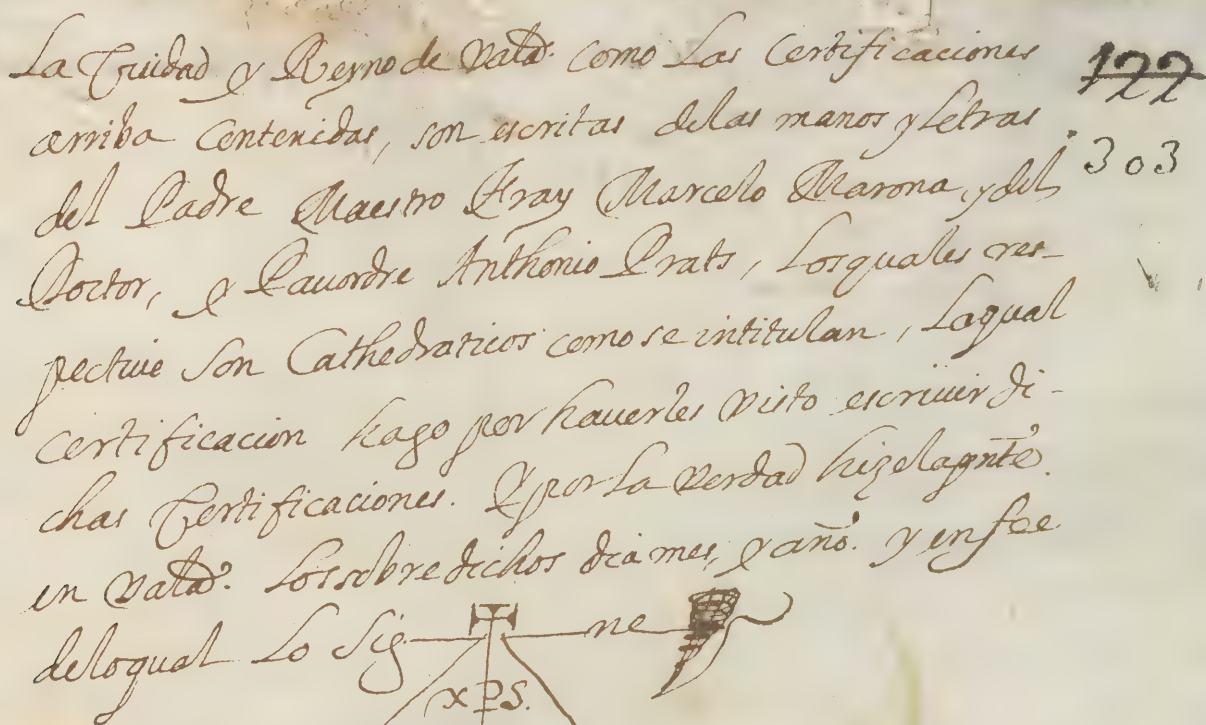 La Ciudad y Reyno de Valã. como Las Certificaciones
arriba Contenidas, son escritas delas manos y Letras
del Padre Maestro Fray Marcelo Marona, y del
Doctor, y Pauordre Anthonio Prats, Los quales res-
pectiue son Cathedraticos como se intitulan, Laqual
Certificacion hago por hauerles Visto escriuir di-
chas Certificaciones. Y por La Verdad hize la pnte.
en Valã. Los sobre dichos dia mes, y año. y en fee
delo qual Lo sig ne
xps.
122
303